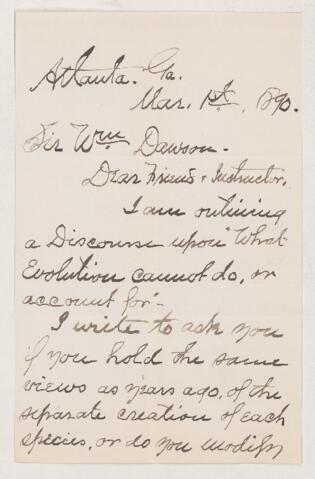 Atlanta. Ga.
Mar. 1st, 1890.
Sir Wm Dawson -
Dear Friend & Instructor,
I am outlining
a Discourse upon "What
Evolution cannot do, or
account for" -
I write to ask you
if you hold the same
views as years ago, of the
separate creation of each
species, or do you modify